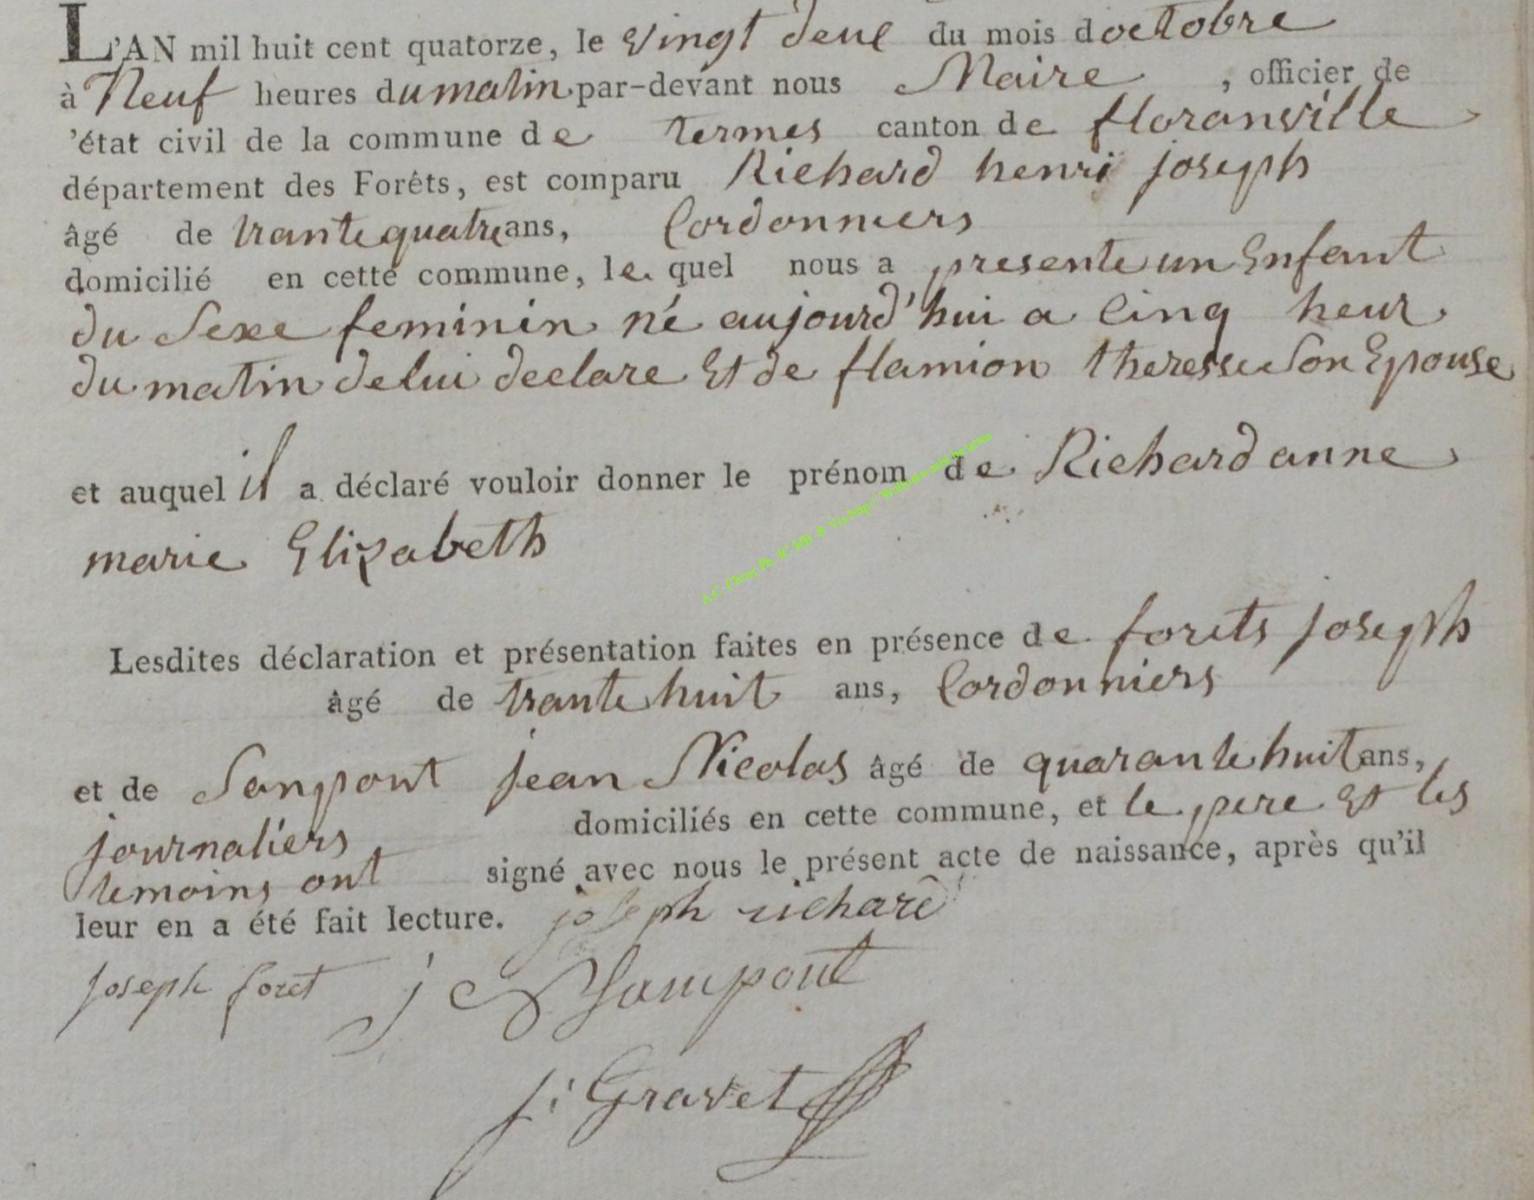 L'AN mil huit cent quatorze, le vingt deux du mois doctobre
à Neuf heures du matin par-devant nous Maire , officier de
'état civil de la commune de termes canton de floranville
département des Forêts, est comparu Richard henri joseph
âgé de trante quatre ans, Cordonniers
domicilié en cette commune, le quel nous a presente un Enfant
du Sexe feminin né aujourd'hui a Cinq heur
du matin de lui declare Et de flamion theresse Son Epouse
et auquel il a déclaré vouloir donner le prénom de Richard anne
marie Elizabeth
Lesdites déclaration et présentation faites en présence de forets joseph
âgé de trante huit ans, Cordonniers
et de Sanpont jean Nicolas âgé de quarante huit ans,
journaliers domiciliés en cette commune, et le pere Et les
temoins ont signé avec nous le présent acte de naissance, après qu'il
leur en a été fait lecture. joseph richard
joseph foret j N Sampont
j: Gravet